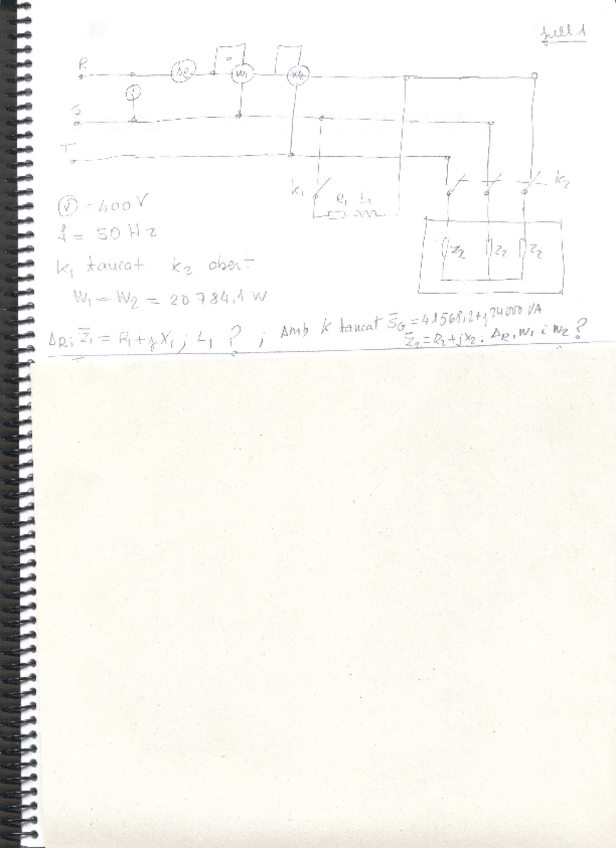 full 1
R
S
T
W1 W2
K1 R1 L1 K2
Z2 Z2 Z2
V = 400 V
f = 50 Hz
K1 tancat K2 obert
W1 = W2 = 20784,1 W
AR; Z̄1 = R1 + jX1, L1 ? ; Amb K tancat S̄G = 41568,2 + j24000 VA
Z̄2 = R2 + jX2. AR, W1 i W2 ?